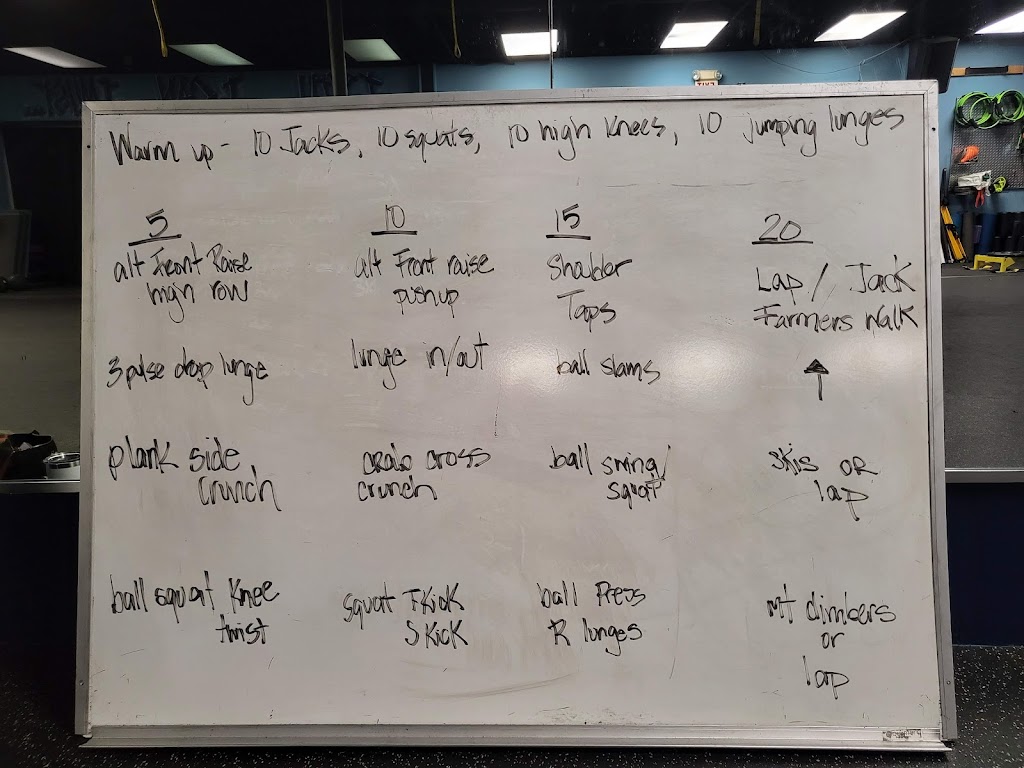 Warm up - 10 Jacks, 10 squats, 10 high knees, 10 jumping lunges
5
alt Front Raise
high row
3 pulse drop lunge
plank side
crunch
ball squat knee
twist
10
alt Front raise
pushup
lunge in/out
crab cross
crunch
squat FKick
SKick
15
Shoulder
Taps
ball slams
ball swing/
squat
ball Press
R lunges
20
Lap / Jack
Farmers Walk
skis OR
lap
mt climbers
or
lap
EXIT